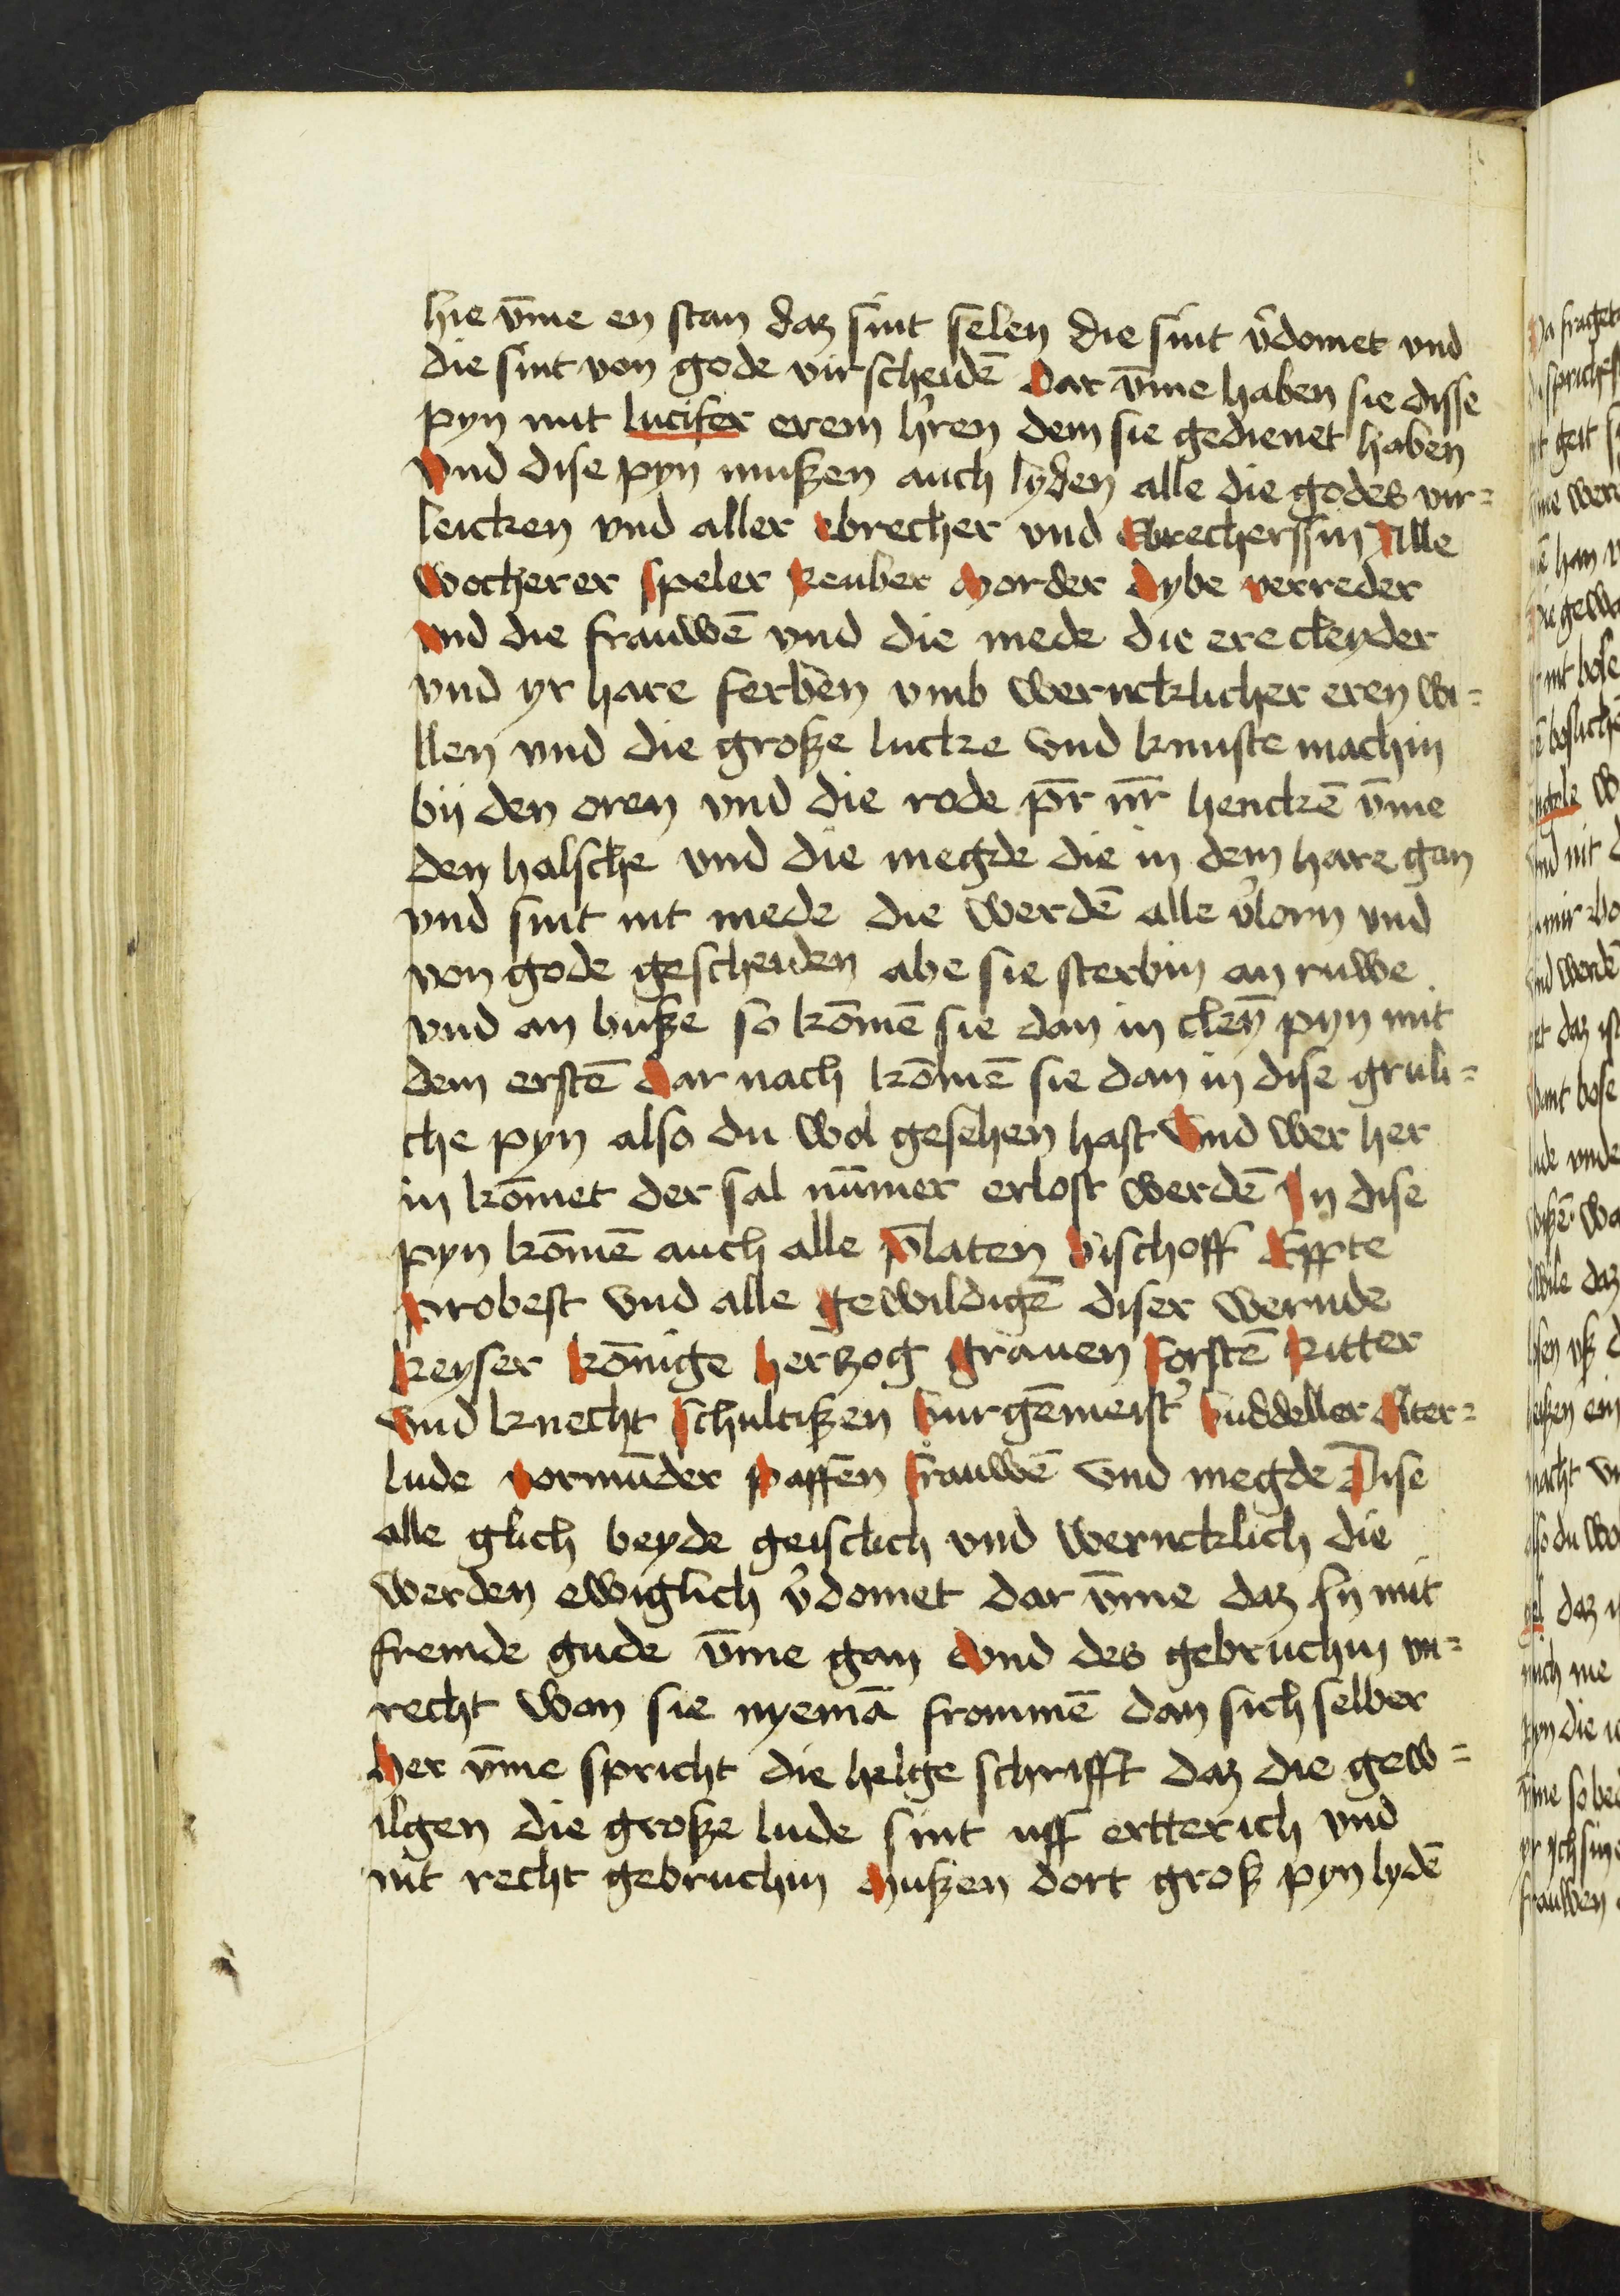 hie v̄me en stan daz sint selen die sint v̓domet vnd
die sint von gode virscheidē Dar v̄me haben sie disse
pyn mit lucifer erem h̓ren dem sie gedienet haben
Vnd dise pyn mußen auch lyden alle die godes vir=
leicken vnd aller ebrecher vnd Ebrecherssin Alle
Wocherer Speler Reuber Morder Dybe Verreder
Vnd die frauwē vnd die mede die ere cleyder
vnd yr hare ferben vmb werncklicher eren wi=
llen vnd die große lucke vnd knuste machin
bij den oren vnd die rode pr̄ nr̄ henckē v̄me
den halsche vnd die megde die in dem hare gan
vnd sint nit mede die werdē alle v̓lorn vnd
von gode gescheiden abe sie sterbin an ruwe
vnd an buße so kōmē sie dan in cleyn̄ pyn mit
dem erstē Dar nach kōmē sie dan in dise gruli=
che pyn also du wol gesehen hast Vnd wer her
in kōmet der sal nūmer erlost werdē In dise
pyn kōmē auch alle p̄laten Bischoff Eppte
Probest Vnd alle gewildigē diser wernde
Keyser Kōnige Herczog Grauen Forstē Ritter
Vnd knecht Schultißen Burgēmeist̓ Buddeller Alter=
lude Vormūder Paffen Frauwē vnd megde Dise
alle glich beyde geistlich vnd werncklich die
werden ewiglich v̓domet dar v̄me daz sy mit
fremde gude v̄me gan Vnd des gebruchin vn=
recht wan sie nyemā frommē dan sich selber
Her v̄me spricht die helige schrifft daz die gew=
ilgen die große lude sint uff ertterich vnd
nit recht gebruchin Mußen dort groß pyn lydē